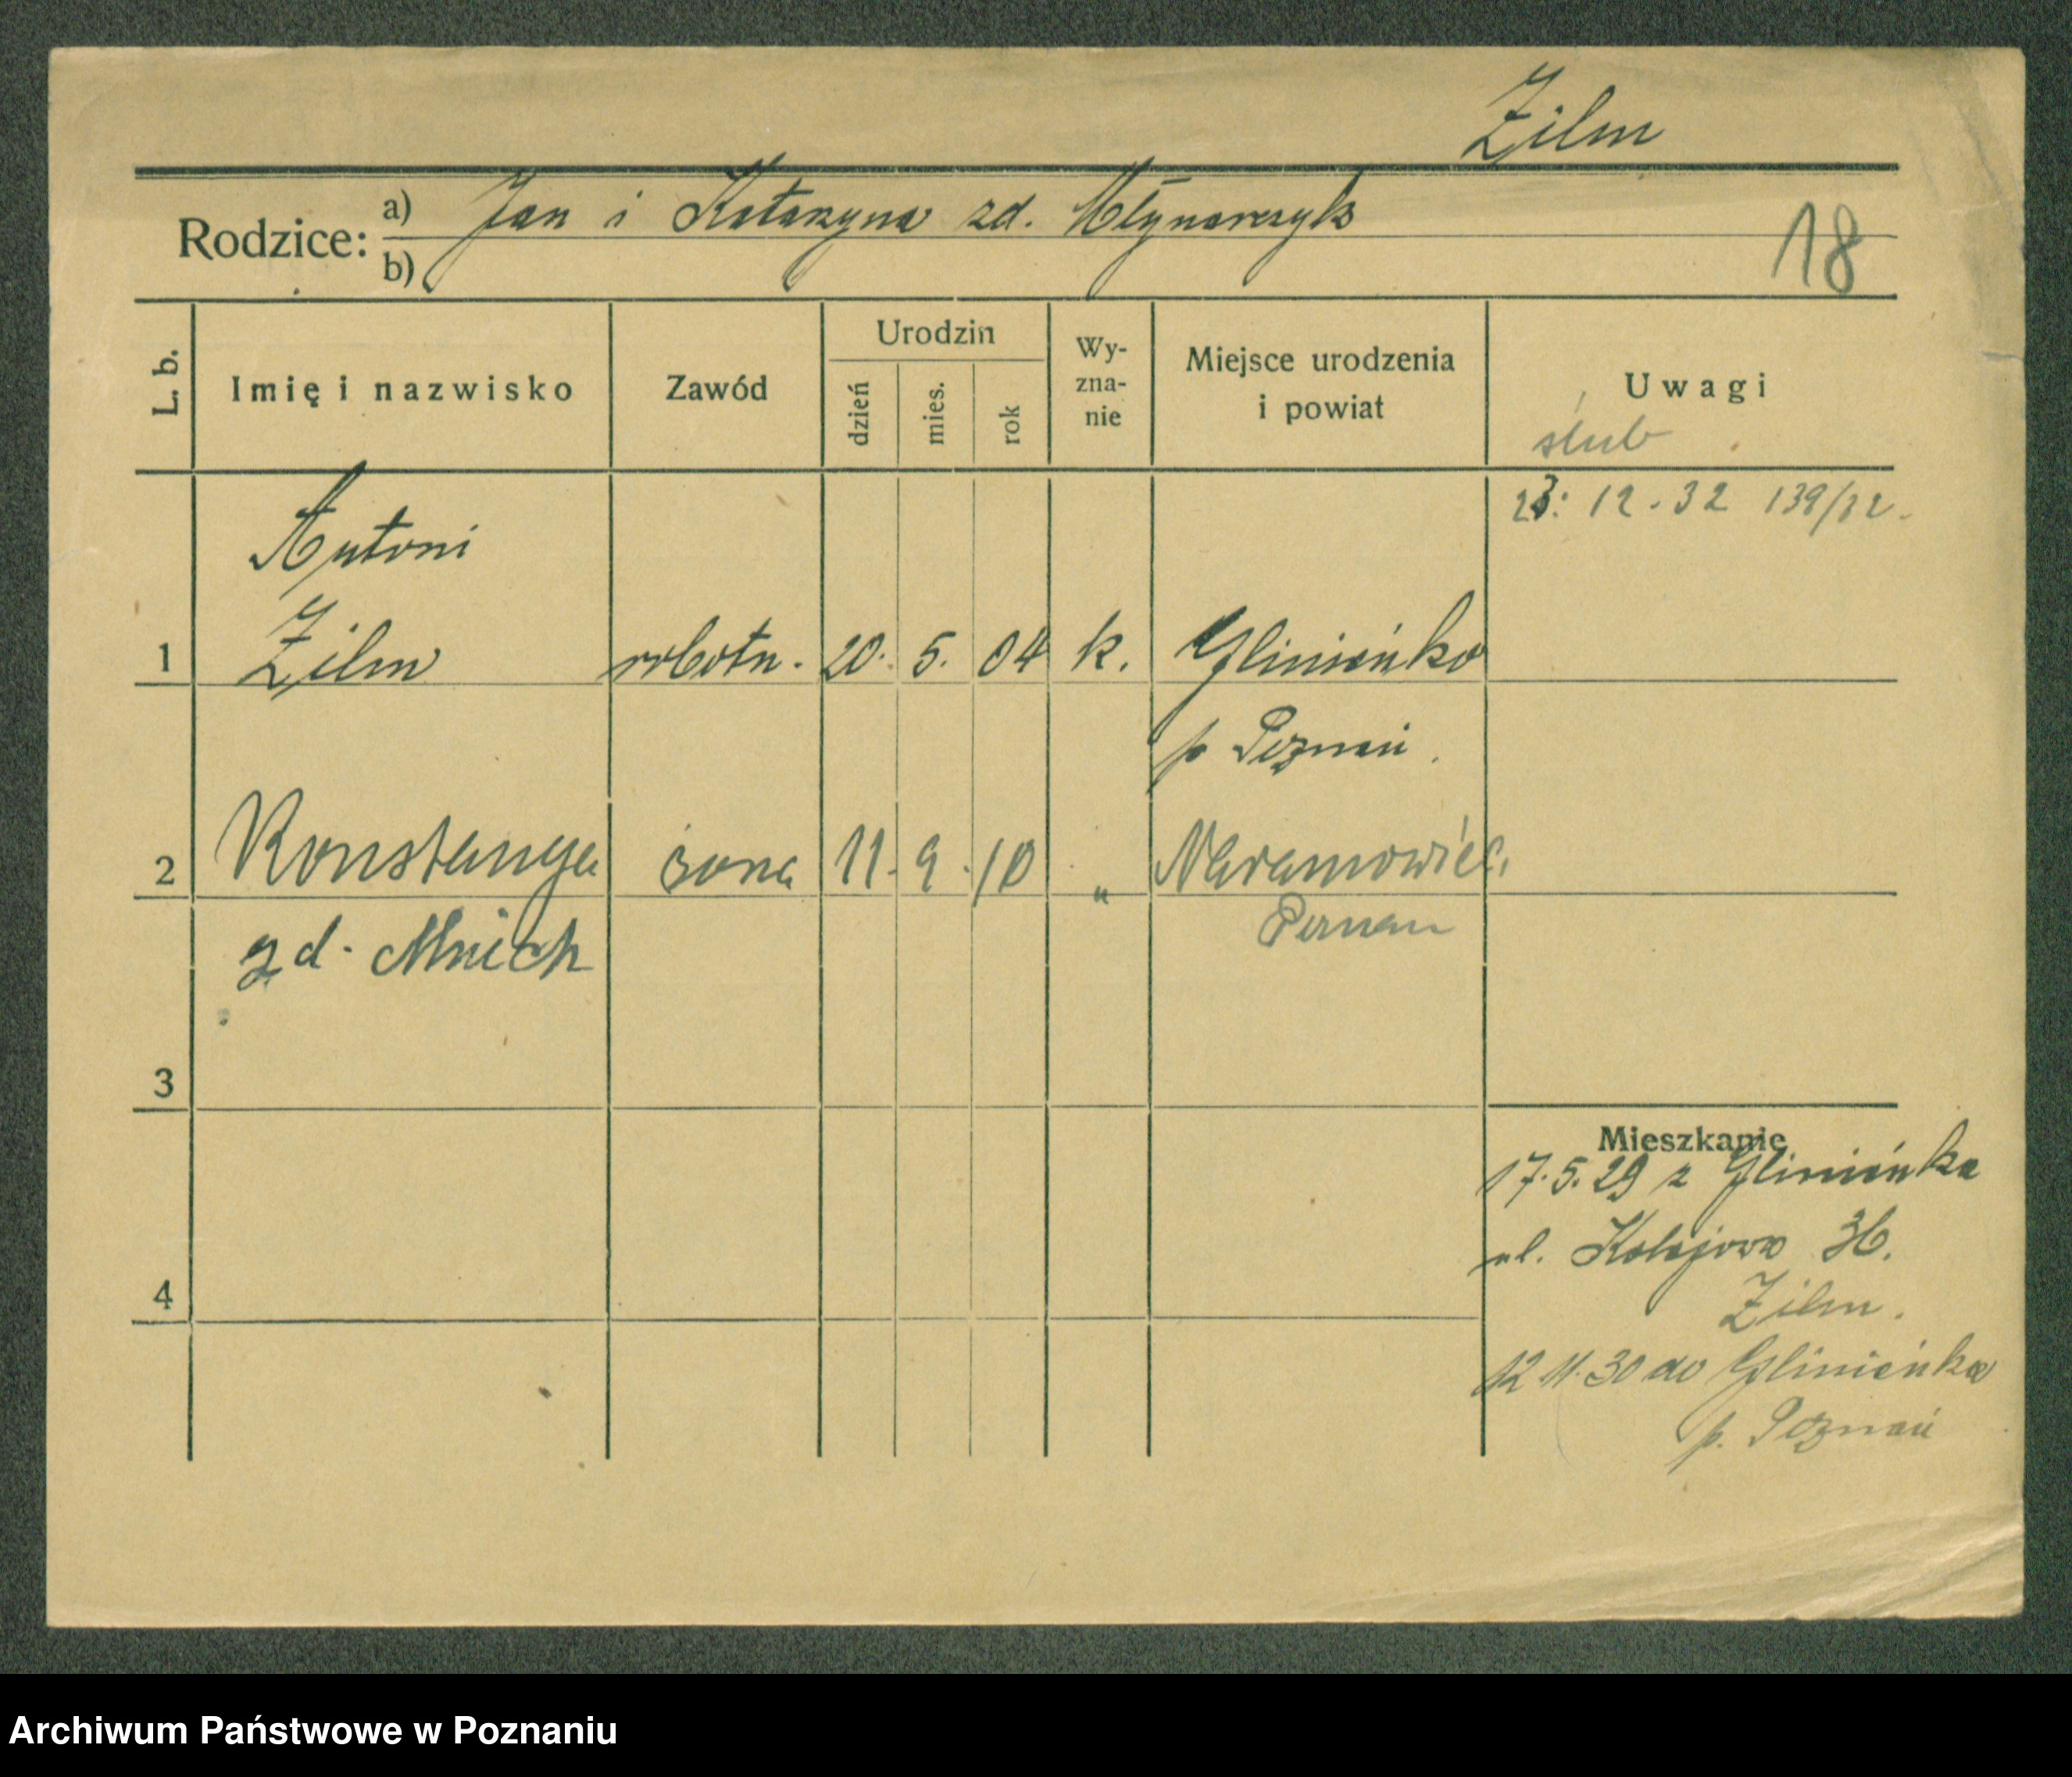 Zilm
Rodzice: a) Jan i Katarzyna zd. Młynarczyk
b)
18
L. b. Imię i nazwisko Zawód Urodzin dzień mies. rok Wy-zna-nie Miejsce urodzenia i powiat Uwagi
ślub
23. 12. 32 139/32.
Antoni
1 Zilm robotn. 20. 5. 04 k. Glinienko
p Poznań.
2 Konstancja żona 11. 9. 10 „ Naramowice
zd. Mnich Poznań
3
Mieszkanie
17.5.29 z Glinienka
ul. Kolejowa 36.
4
Zilm.
12 11. 30 do Glinienka
p. Poznań
Archiwum Państwowe w Poznaniu